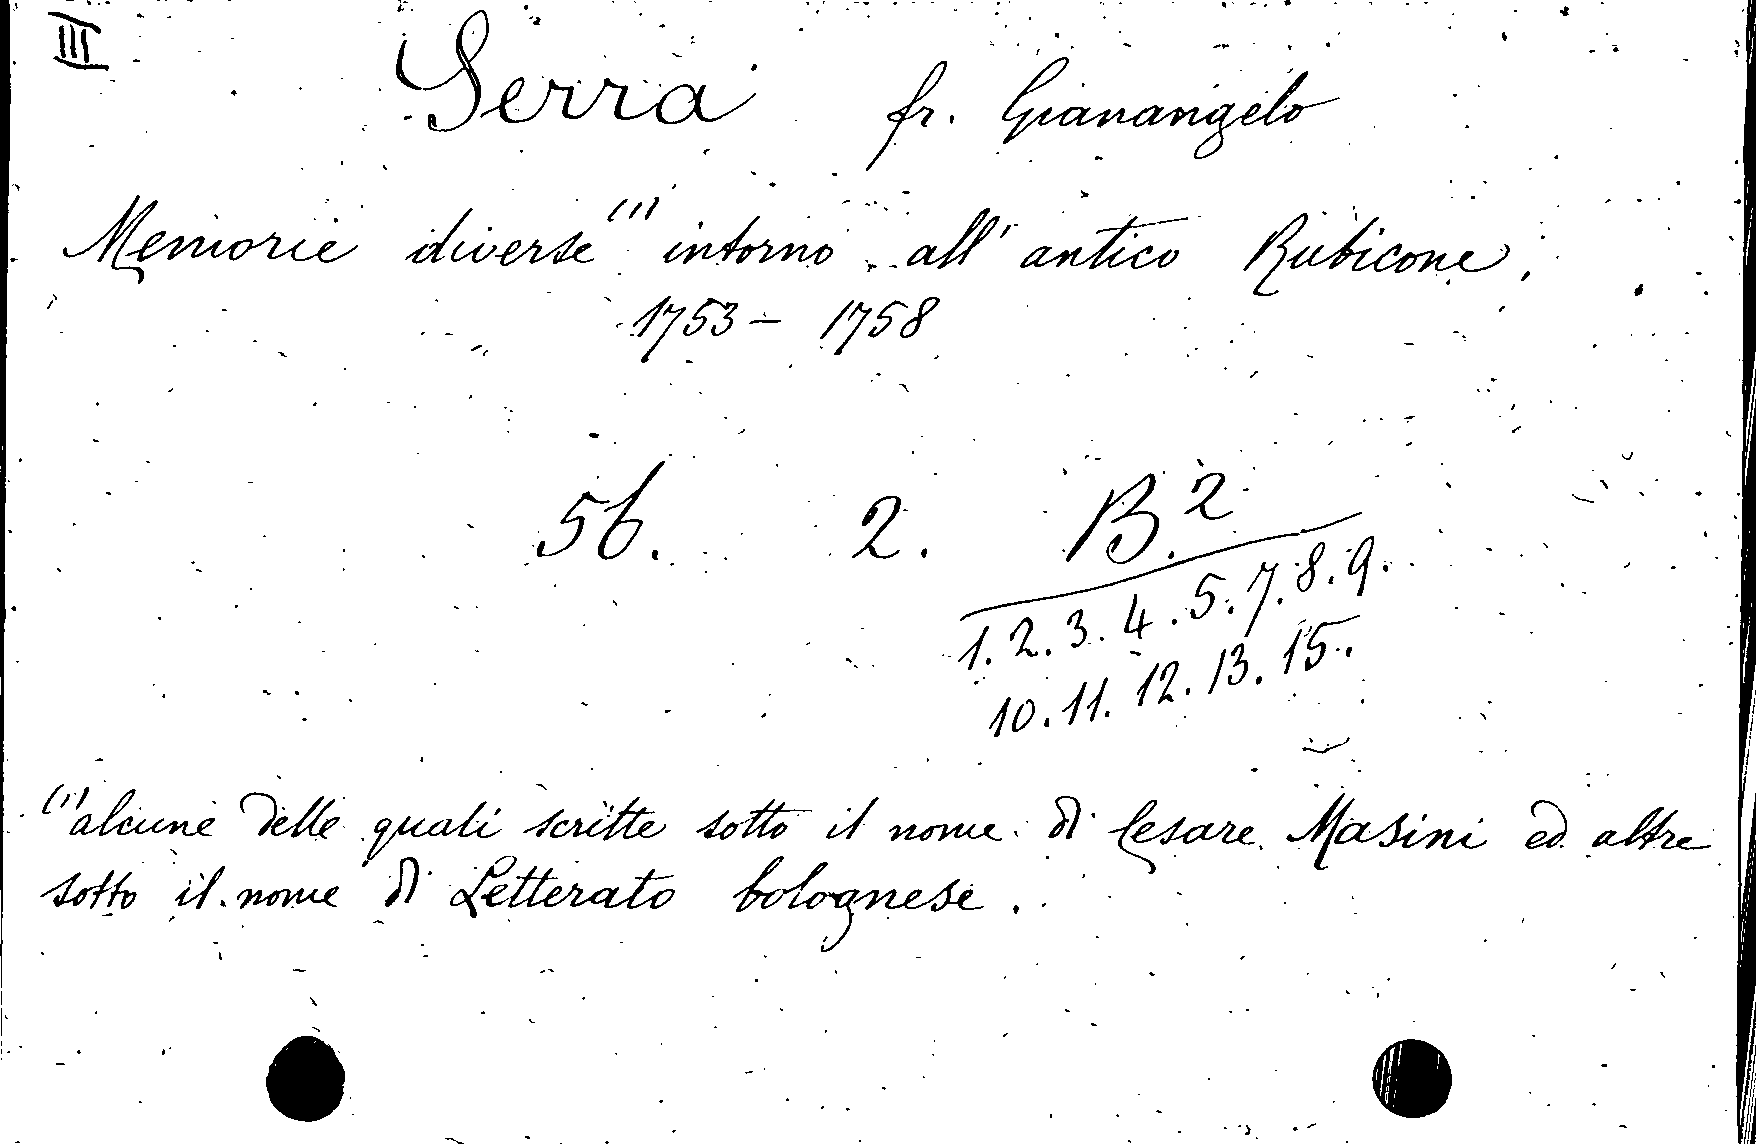 III
Serra fr. Gianangelo
Memorie diverse (1) intorno all' antico Rubicone,
1753 – 1758
56. 2. B.2
1. 2. 3. 4. 5. 7. 8. 9.
10. 11. 12. 13. 15.
(1) alcune delle quali scritte sotto il nome di Cesare Masini ed altre
sotto il nome di Letterato bolognese.